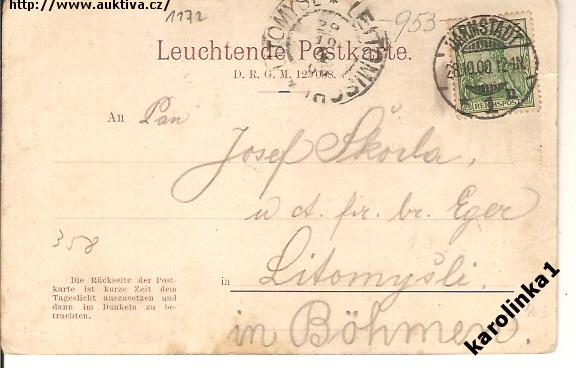 http://www.auktiva.cz/
1172
953
LITOMYŠL * LEITOMISCHL
Leuchtende Postkarte.
D. R. G. M. 125098.
DARMSTADT
28.10.00 12-1N.
REICHSPOST
An Pan
Josef Škorla,
u ct. fir. br. Eger
358
Die Rückseite der Post-
karte ist kurze Zeit dem
Tageslicht auszusetzen und
dann im Dunkeln zu be-
trachten.
in Litomyšli.
in Böhmen.
karolinka1